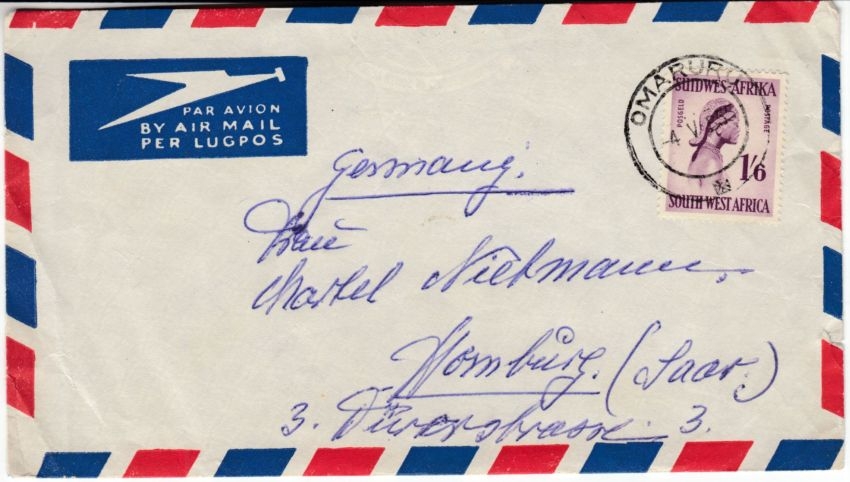 PAR AVION
BY AIR MAIL
PER LUGPOS
OMARURU
4 V
SUIDWES-AFRIKA
POSGELD
POSTAGE
1/6
SOUTH WEST AFRICA
Germany.
Frau
Martel Nietmann,
Homburg. (Saar.)
3. Dürerstrasse 3.